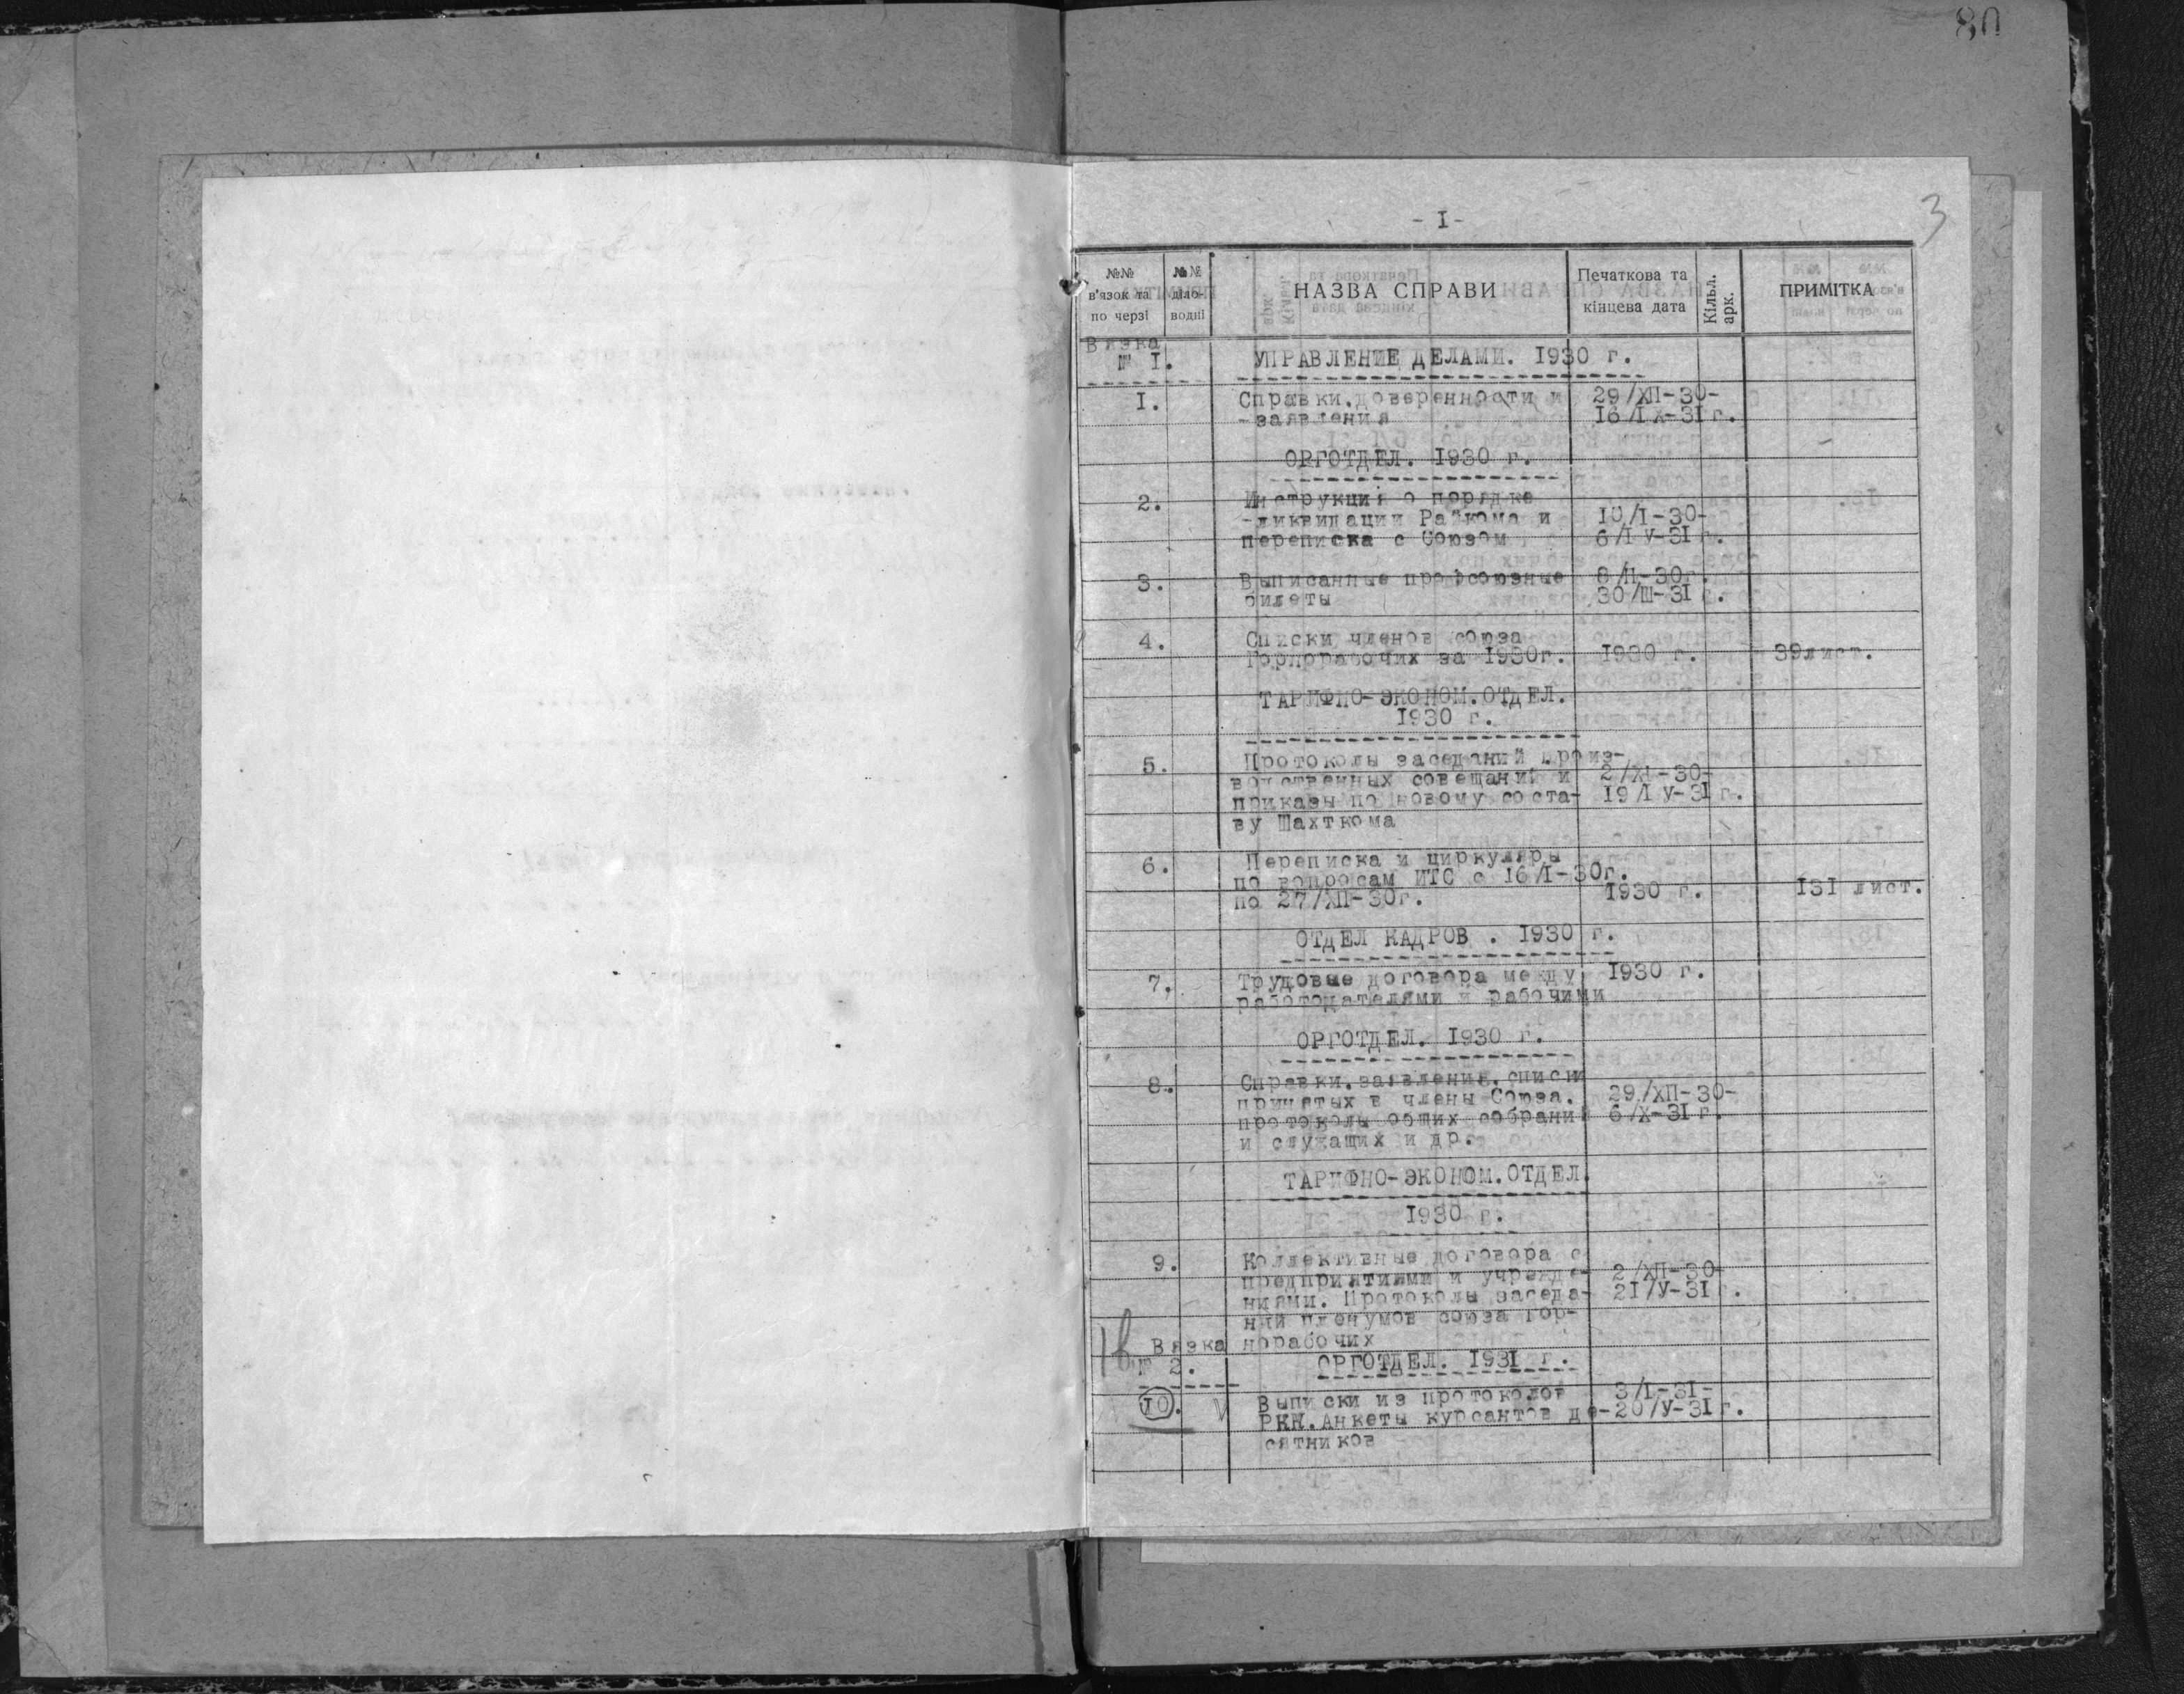 80
3
- I -
№№ в'язок та по черзі | №№ діло- водні | НАЗВА СПРАВИ | Печаткова та кінцева дата | Кільк. арк. | ПРИМІТКА
Вязка
№ I. УПРАВЛЕНИЕ ДЕЛАМИ. 1930 г.
I. Справки, доверенности и 29/ХП-30-
заявления 16/IX-31г.
ОРГОТДЕЛ. 1930 г.
2. Инструкция о порядке
ликвидации Райкома и 10/I-30-
переписка с Союзом 6/IУ-31г.
3. Выписанные профсоюзные 8/П-30г.
билеты 30/Ш-31г.
4. Списки членов союза
Горнорабочих за 1930г. 1930 г. 39лист.
ТАРИФНО-ЭКОНОМ.ОТДЕЛ.
1930 г.
5. Протоколы заседаний произ-
водственных совещаний и 2/XI-30-
приказы по новому соста- 19/IУ-31г.
ву Шахткома
6. Переписка и циркуляры
по вопросам ИТС с 16/I-30г.
по 27/ХП-30г. 1930 г. 131 лист.
ОТДЕЛ КАДРОВ . 1930 г.
7. Трудовые договора между 1930 г.
работодателями и рабочими
ОРГОТДЕЛ. 1930 г.
8. Справки, заявления, списки
принятых в члены Союза. 29/ХП-30-
протоколы общих собрани 6/X-31г.
и служащих и др.
ТАРИФНО-ЭКОНОМ.ОТДЕЛ.
1930 г.
9. Коллективные договора с
предприятиями и учрежде- 2/ХП-30-
ниями. Протоколы заседа- 21/У-31г.
ний пленумов союза Гор-
Вязка норабочих
№ 2. ОРГОТДЕЛ. 1931 г.
10. V Выписки из протоколов 3/I-31-
РКК. Анкеты курсантов де- 20/У-31г.
сятников